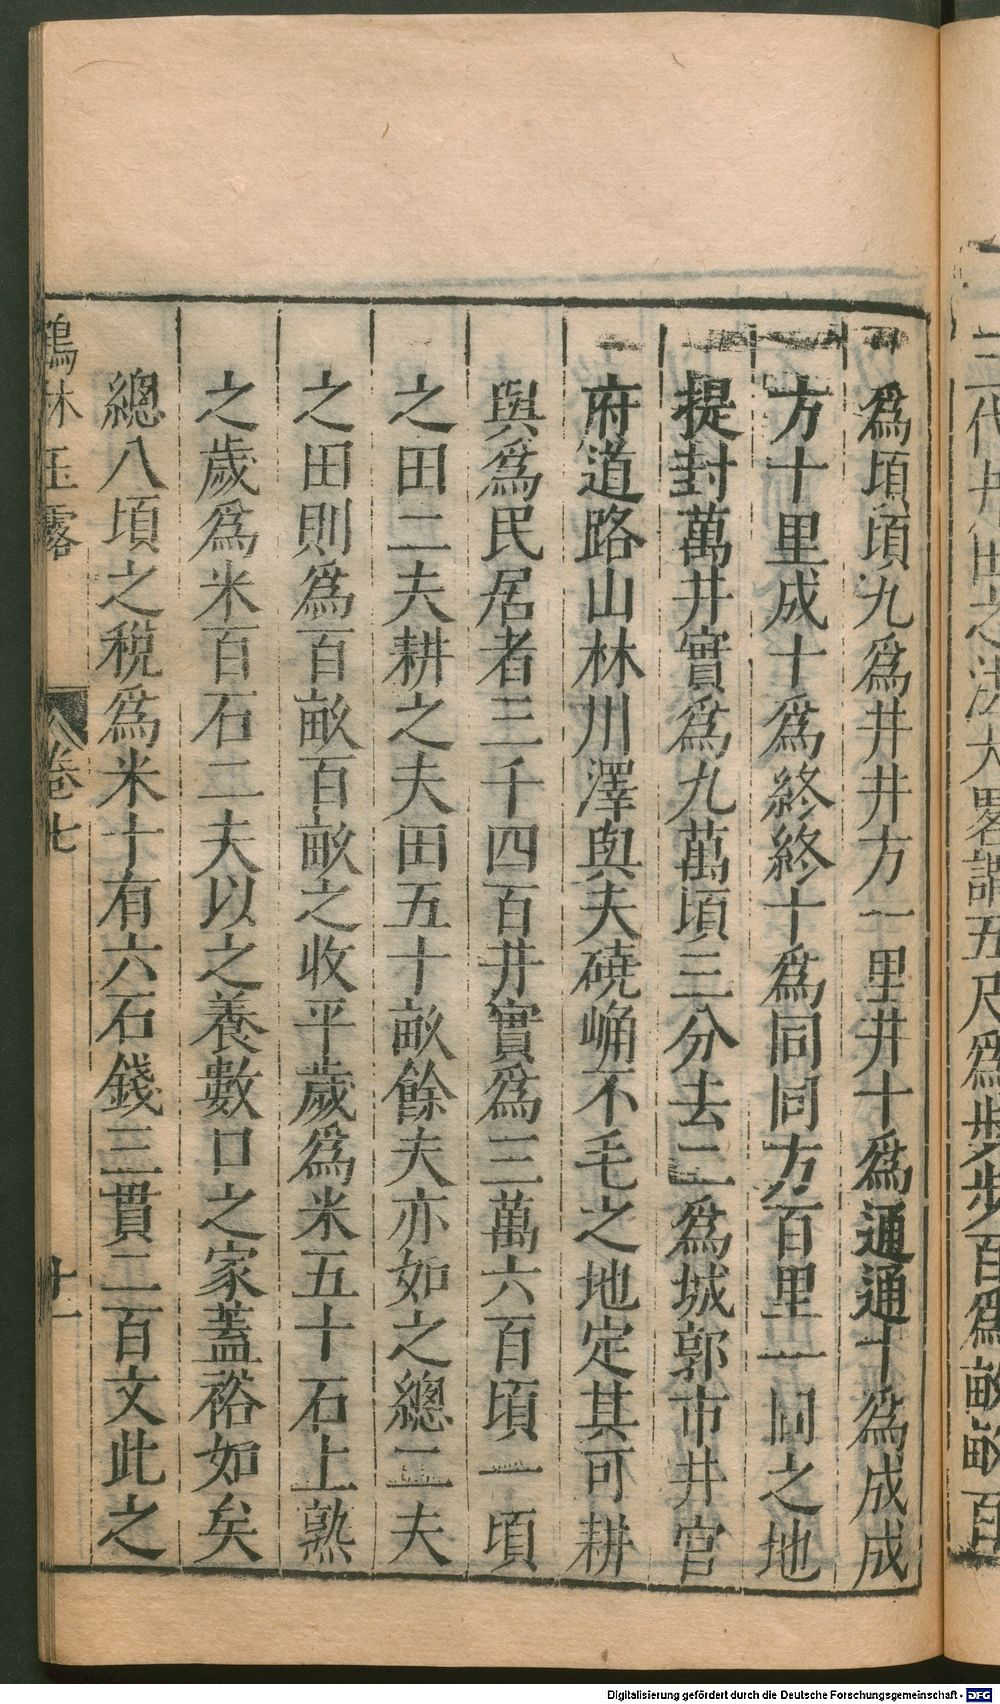 三代井田之法大畧謂五尺為步步百為畝畝百
為頃頃九為井井方一里井十為通通十為成成
方十里成十為終終十為同同方百里一同之地
提封萬井實為九萬頃三分去二為城郭市井官
府道路山林川澤與夫磽崅不毛之地定其可耕
與為民居者三千四百井實為三萬六百頃一頃
之田二夫耕之夫田五十畝餘夫亦如之總二夫
之田則為百畝百畝之收平歲為米五十石上熟
之歲為米百石二夫以之養數口之家蓋裕如矣
總八頃之稅為米十有六石錢三貫二百文此之
鶴林玉露 卷七 廿一
Digitalisierung gefördert durch die Deutsche Forschungsgemeinschaft - DFG